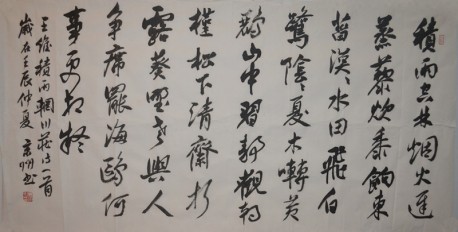 積雨空林烟火遲
蒸藜炊黍餉東
菑漠〻水田飛白
鷺陰〻夏木囀黄
鸝山中習靜觀朝
槿松下清齋折
露葵野老與人
争席罷海鷗何
事更相疑
王維積雨輞川莊作一首
歲在壬辰仲夏 书